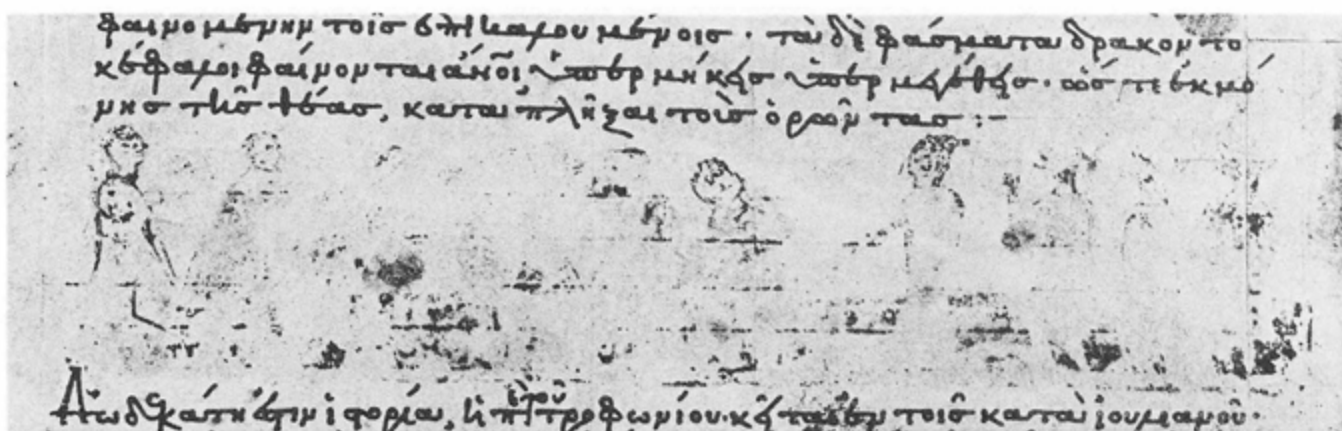 φαινομένην τοῖς ἐπικαλουμένοις · τὰ δὲ φάσματα δρακοντο
κέφαλοι φαίνονται ἄνοι ὑπὲρ μήκεσ ὑπὲρ μεγέθεσ · ὥς τε ἐκ μό
νης τῆς θέας, καταπλῆξαι τοὺς ὁρῶντας :–
Δωδεκάτη ἐστὶν ἱστορία, ἡ π τοῦ τροφωνίου · κεῖται ἐν τοῖς κατὰ ἰουλιανοῦ ·